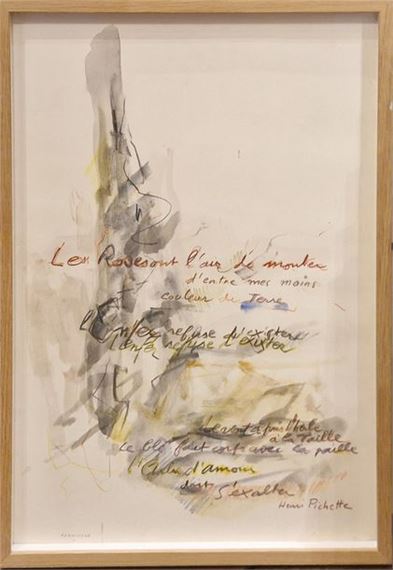 Les Roses ont l'air de monter
d'entre mes mains
couleur de Terre
L'enfer refuse d'exister
l'enfer refuse d'exister
à la Taille
Le blé fait corps avec la paille
d'amour
doit
S'exalter
Henri Pichette